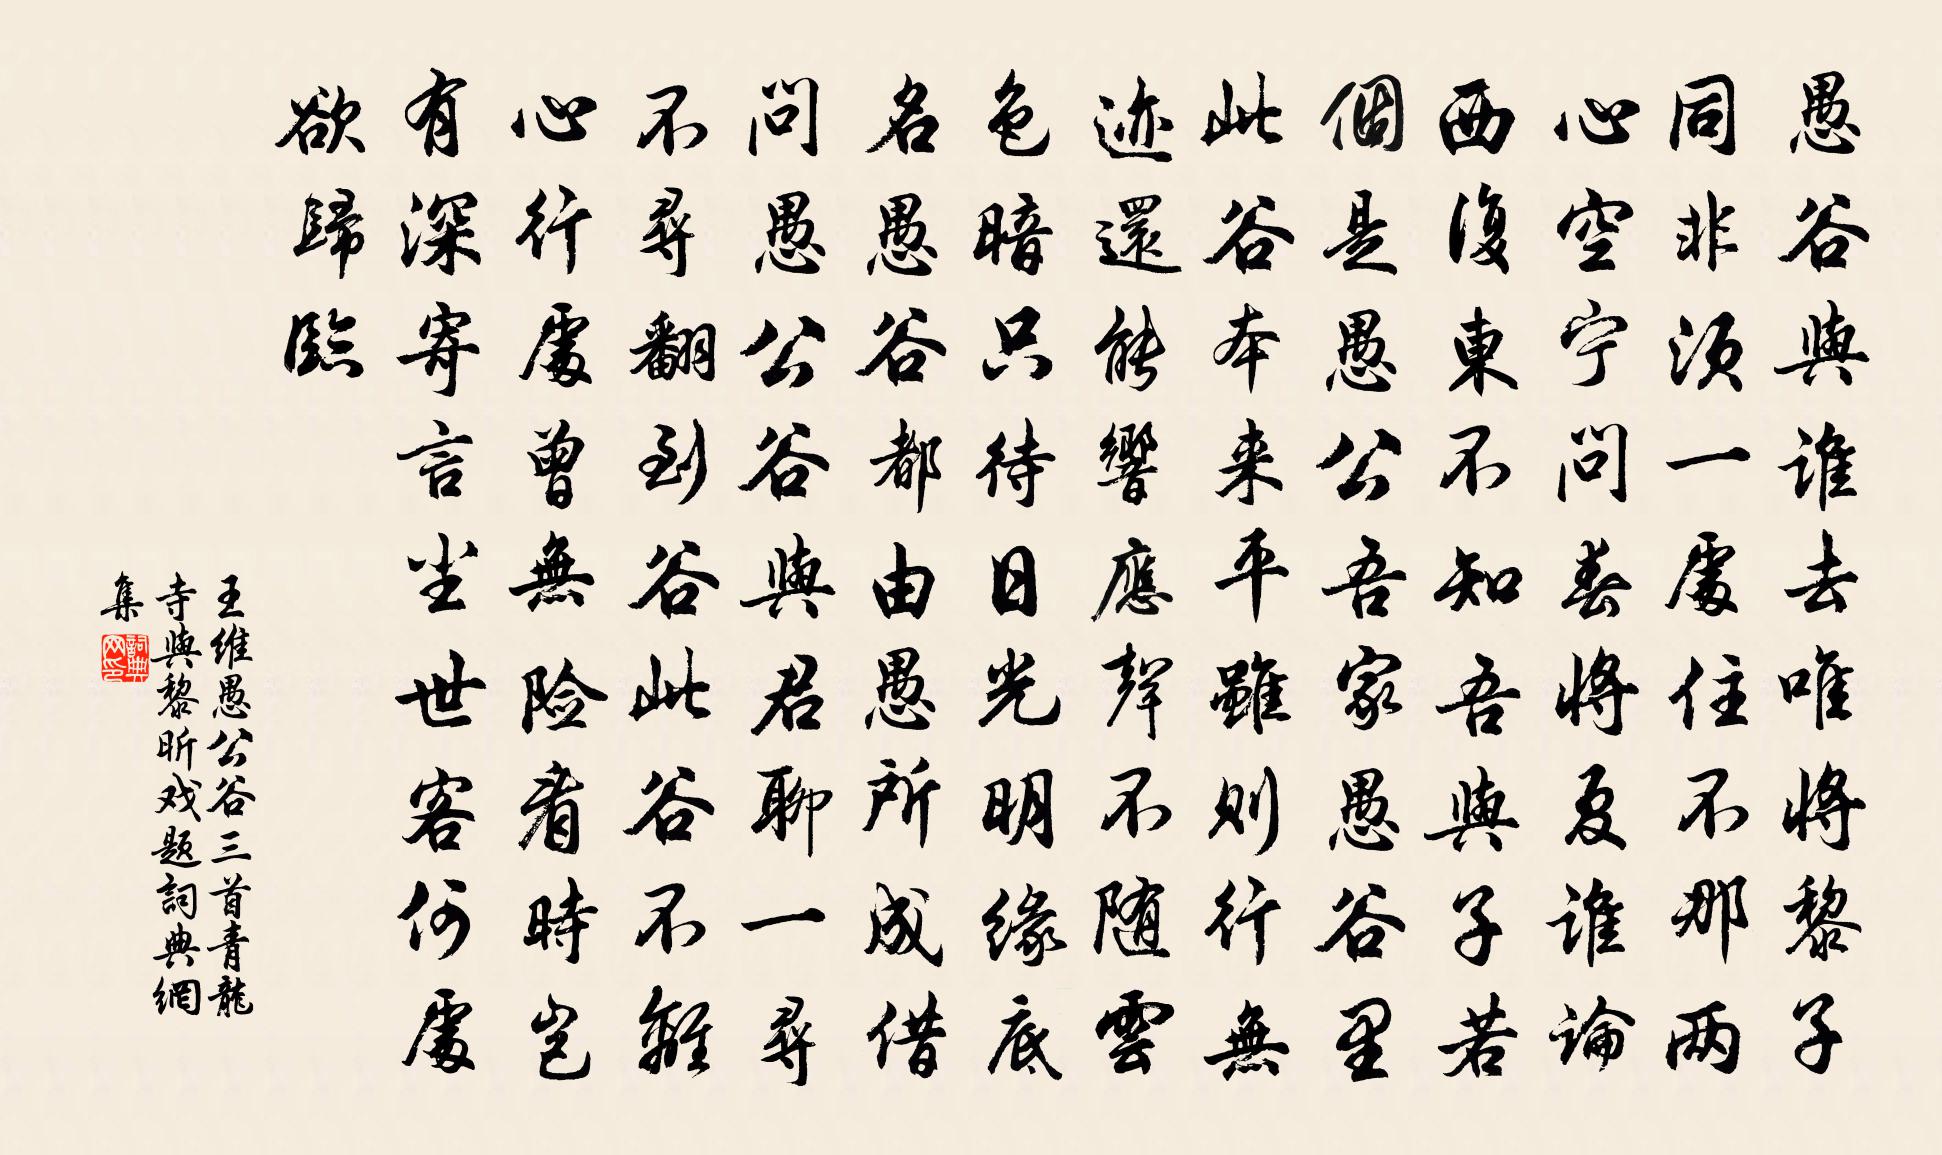 愚谷與誰去唯將黎子
同非須一處住不那兩
心空宁問春將夏誰論
西復東不知吾與子若
個是愚公吾家愚谷里
此谷本来平雖則行無
迹還能響應聲不随雲
色暗只待日光明缘底
名愚谷都由愚所成借
問愚公谷與君聊一尋
不尋翻到谷此谷不離
心行處曾無险看時岂
有深寄言尘世客何處
欲歸臨
王維愚公谷三首青龍
寺與黎昕戏题詞典網
集
詞典网印